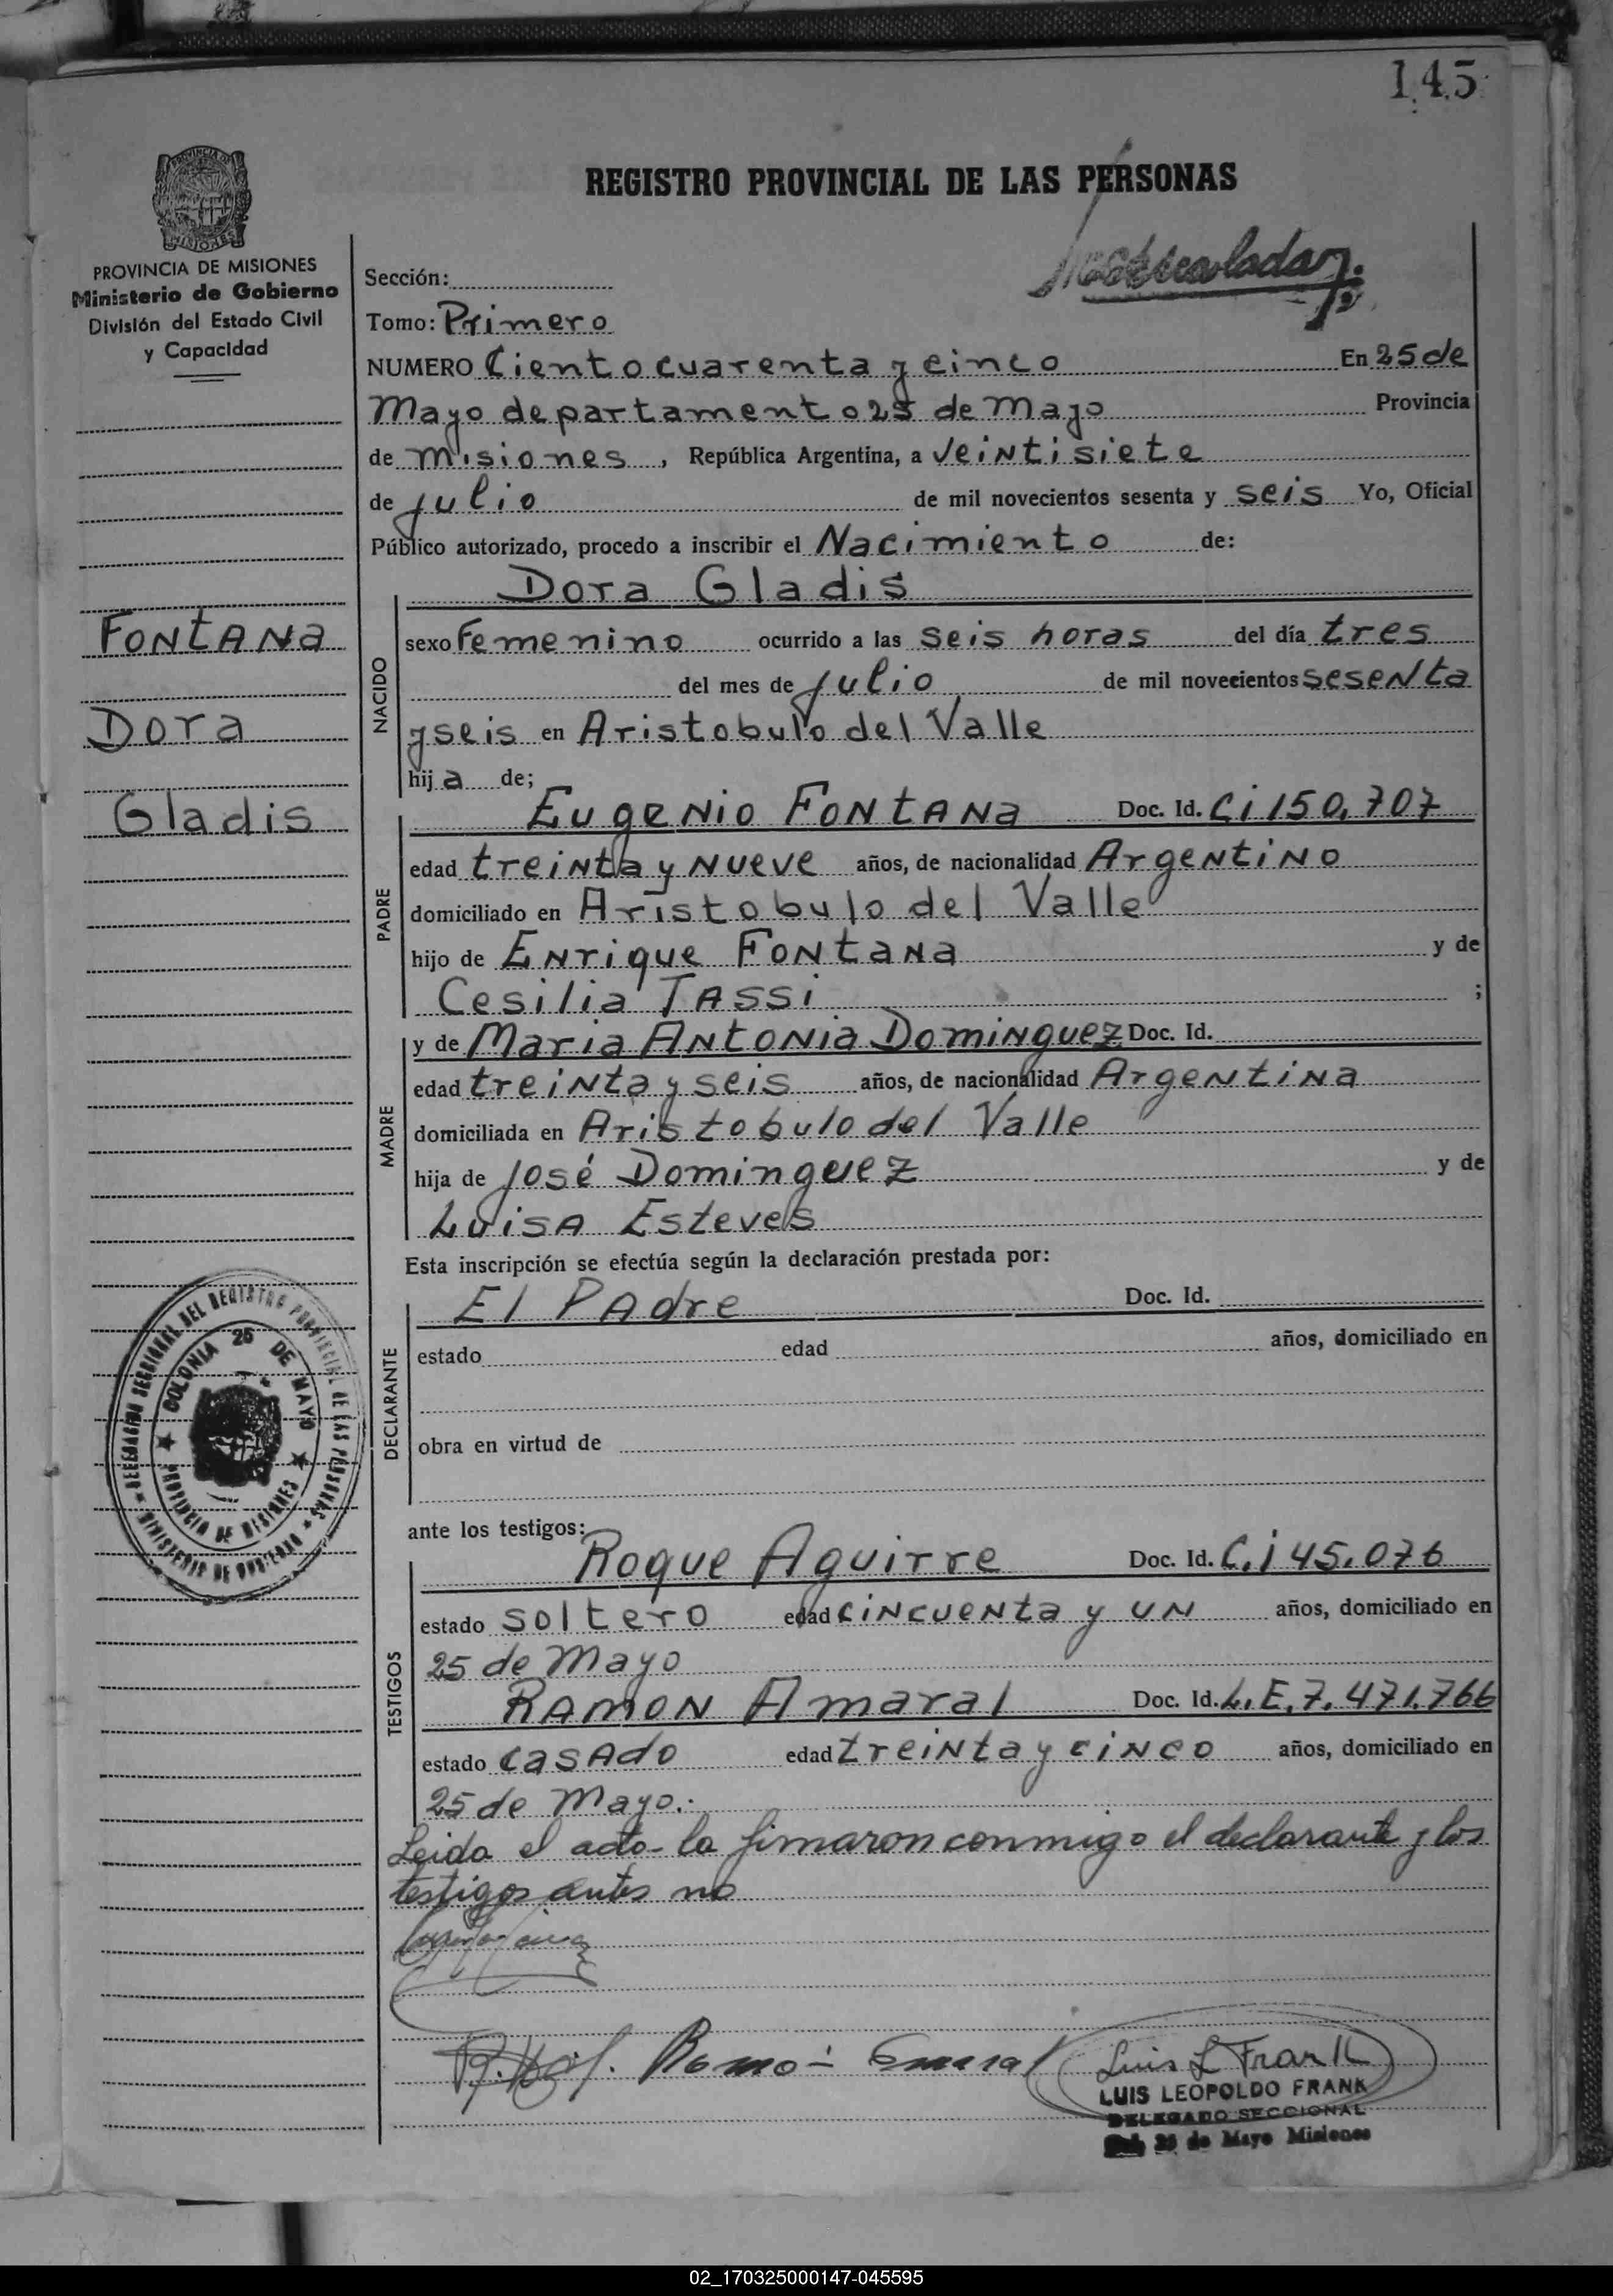 145
REGISTRO PROVINCIAL DE LAS PERSONAS
PROVINCIA DE MISIONES
Ministerio de Gobierno
División del Estado Civil
y Capacidad
Sección:
Tomo: Primero
NUMERO Ciento cuarenta y cinco En 25 de
Mayo departamento 25 de Mayo Provincia
de Misiones, República Argentina, a veintisiete
de julio de mil novecientos sesenta y seis Yo, Oficial
Público autorizado, procedo a inscribir el Nacimiento de:
FONTANA
Dora
Gladis
NACIDO
Dora Gladis
sexo Femenino ocurrido a las seis horas del día tres
del mes de julio de mil novecientos sesenta
y seis en Aristobulo del Valle
hija de;
PADRE
Eugenio FONTANA Doc. Id. Ci 150,707
edad treinta y nueve años, de nacionalidad Argentino
domiciliado en Aristobulo del Valle
hijo de Enrique Fontana y de
Cesilia TASSi ;
MADRE
y de Maria Antonia Dominguez Doc. Id.
edad treinta y seis años, de nacionalidad Argentina
domiciliada en Aristobulo del Valle
hija de José Dominguez y de
Luisa Esteves
Esta inscripción se efectúa según la declaración prestada por:
DECLARANTE
El Padre Doc. Id.
estado edad años, domiciliado en
obra en virtud de
ante los testigos:
TESTIGOS
Roque Aguirre Doc. Id. C.i 45.076
estado soltero edad cincuenta y un años, domiciliado en
25 de Mayo
Ramon Amaral Doc. Id. L.E. 7.471.766
estado casado edad treinta y cinco años, domiciliado en
25 de Mayo.
Leida el acta la firmaron conmigo el declarante y los
testigos antes no
DELEGACION SECCIONAL DEL REGISTRO PROVINCIAL DE LAS PERSONAS
MINISTERIO DE GOBIERNO
COLONIA 25 DE MAYO
PROVINCIA DE MISIONES
Luis L Frank
LUIS LEOPOLDO FRANK
DELEGADO SECCIONAL
25 de Mayo Misiones
02_170325000147-045595